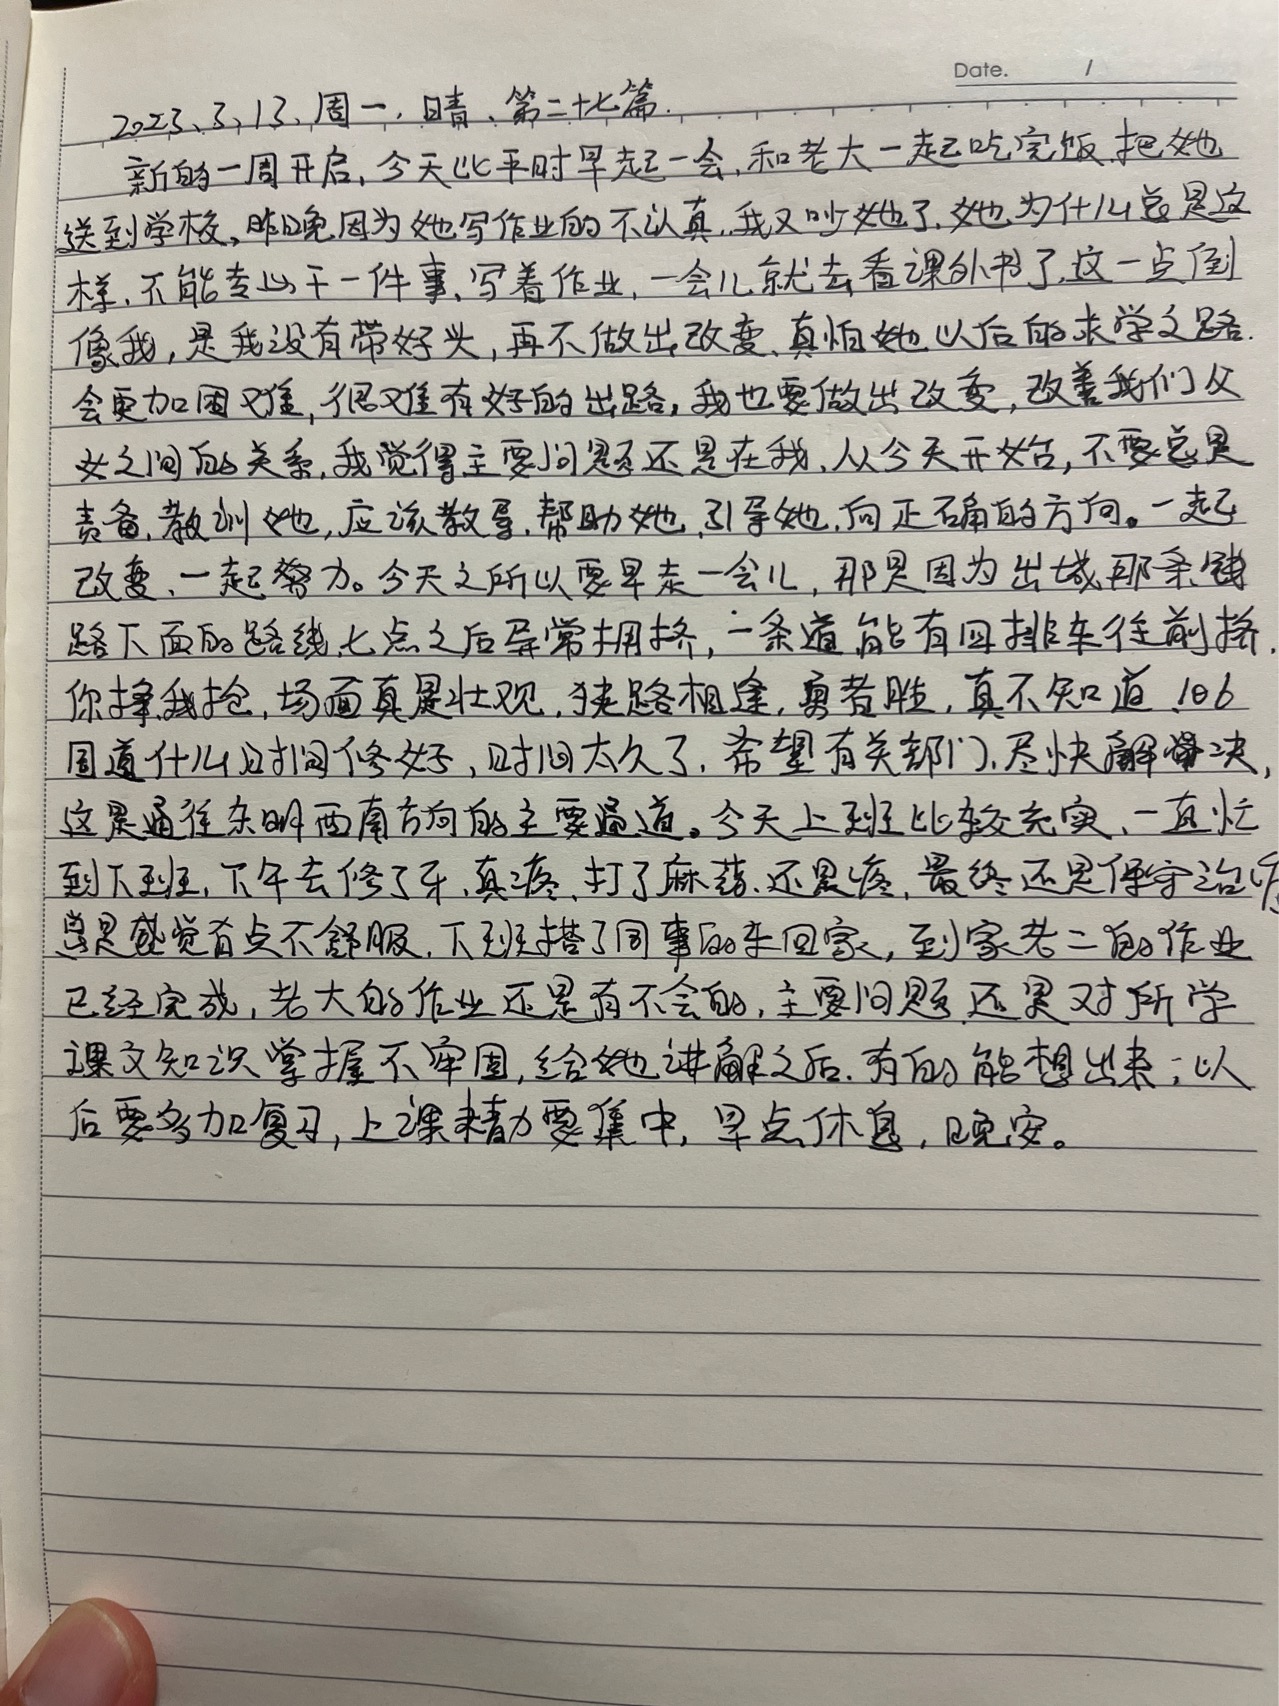 Date. /
2023、3、13、周一、晴、第二十七篇.
新的一周开启,今天比平时早起一会,和老大一起吃完饭,把她
送到学校,昨晚因为她写作业的不认真,我又吵她了,她为什么总是这
样,不能专心干一件事,写着作业,一会儿就去看课外书了,这一点倒
像我,是我没有带好头,再不做出改变,真怕她以后的求学之路.
会更加困难,很难有好的出路,我也要做出改变,改善我们父
女之间的关系,我觉得主要问题还是在我,从今天开始,不要总是
责备,教训她,应该教导,帮助她,引导她,向正确的方向。一起
改变、一起努力。今天之所以要早走一会儿,那是因为出城那条铁
路下面的路线,七点之后异常拥挤,一条道能有四排车往前挤.
你择我抢,场面真是壮观,狭路相逢,勇者胜,真不知道106
国道什么时间修好,时间太久了,希望有关部门,尽快解决,
这是通往东明西南方向的主要通道。今天上班比较充实、一直忙
到下班,下午去修了牙,真疼,打了麻药,还是疼,最终还是保守治疗
总是感觉有点不舒服,下班搭了同事的车回家,到家老二的作业
已经完成,老大的作业还是有不会的,主要问题还是对所学
课文知识掌握不牢固,给她讲解之后,有的能想出来;以
后要多加复习,上课精力要集中,早点休息,晚安。